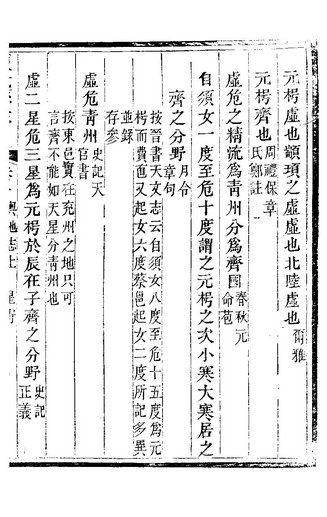 元枵虛也顓頊之虛虛也北陸虛也爾雅
元枵齊也周禮保章
氏鄭註
虛危之精流爲青州分爲齊國春秋元
命苞
自須女一度至危十度謂之元枵之次小寒大寒居之
齊之分野月令
章句
按晉書天文志云自須女八度至危十五度爲元
枵而費直又起女六度蔡邕起女二度所記多異
並錄
存參
虛危青州史記天
官書
按東邑實在兖州之地只可
言齊不能如天星分青州也
虛二星危三星爲元枵於辰在子齊之分野史記
正義
輿地志上 星野